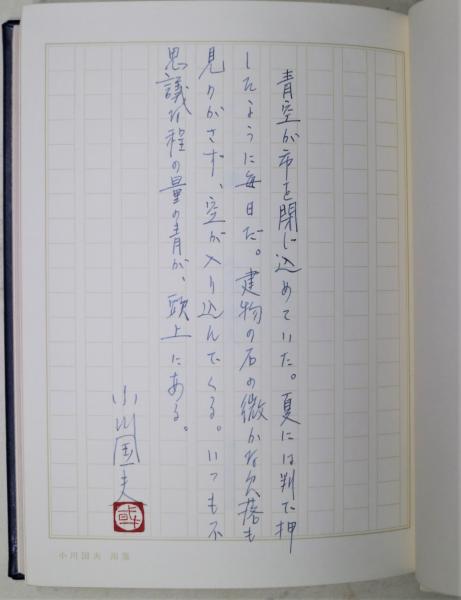 青空が市を閉じ込めていた。夏には判で押
したように毎日だ。建物の石の微かな欠落も
見のがさず、空が入り込んでくる。いつも不
思議な程の量の青が、頭上にある。
小川国夫
小川国夫 用箋